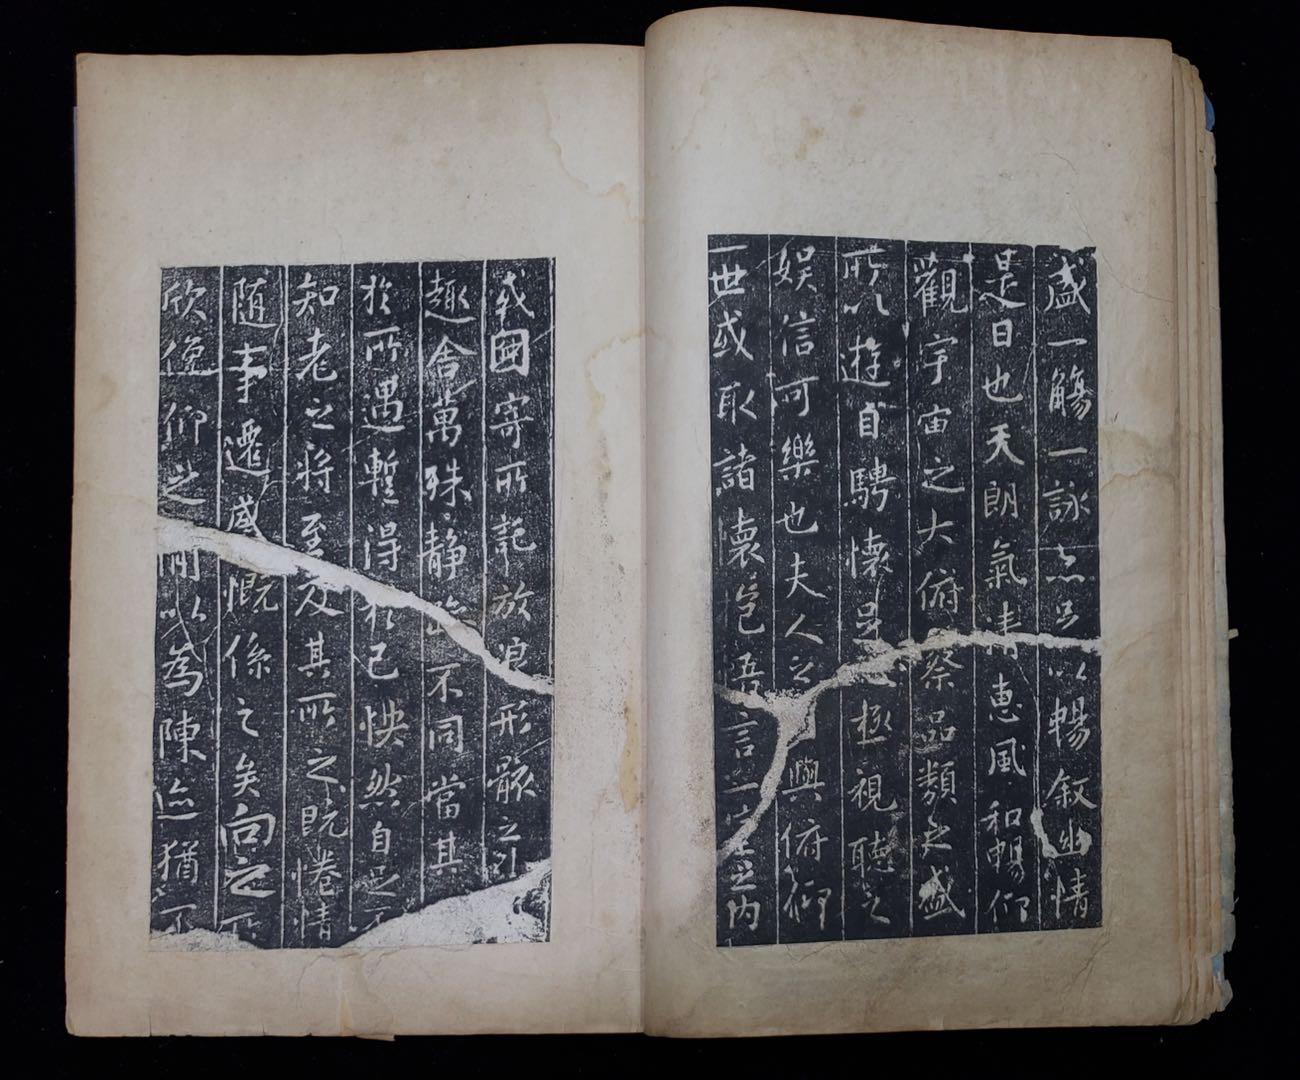 盛一觴一詠亦足以暢叙幽情
是日也天朗氣清惠風和暢仰
觀宇宙之大俯察品類之盛
所以遊目騁懷足以極視聽之
娛信可樂也夫人之相與俯仰
一世或取諸懷抱悟言一室之内
或因寄所託放浪形骸之外
趣舍萬殊静躁不同當其
於所遇暫得於己怏然自足不
知老之將至及其所之既惓情
隨事遷感慨係之矣向之所
欣俛仰之間以為陳迹猶不